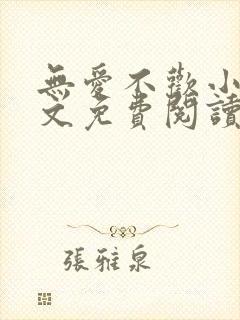 無愛不歡小
文免費閱讀
張雅泉